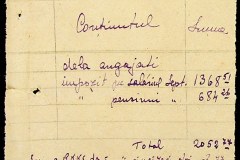 Continutul Suma
dela angajati
impozit pe salarii Sept. 1368 51
" pensiuni " 684 26
Total 2052 77